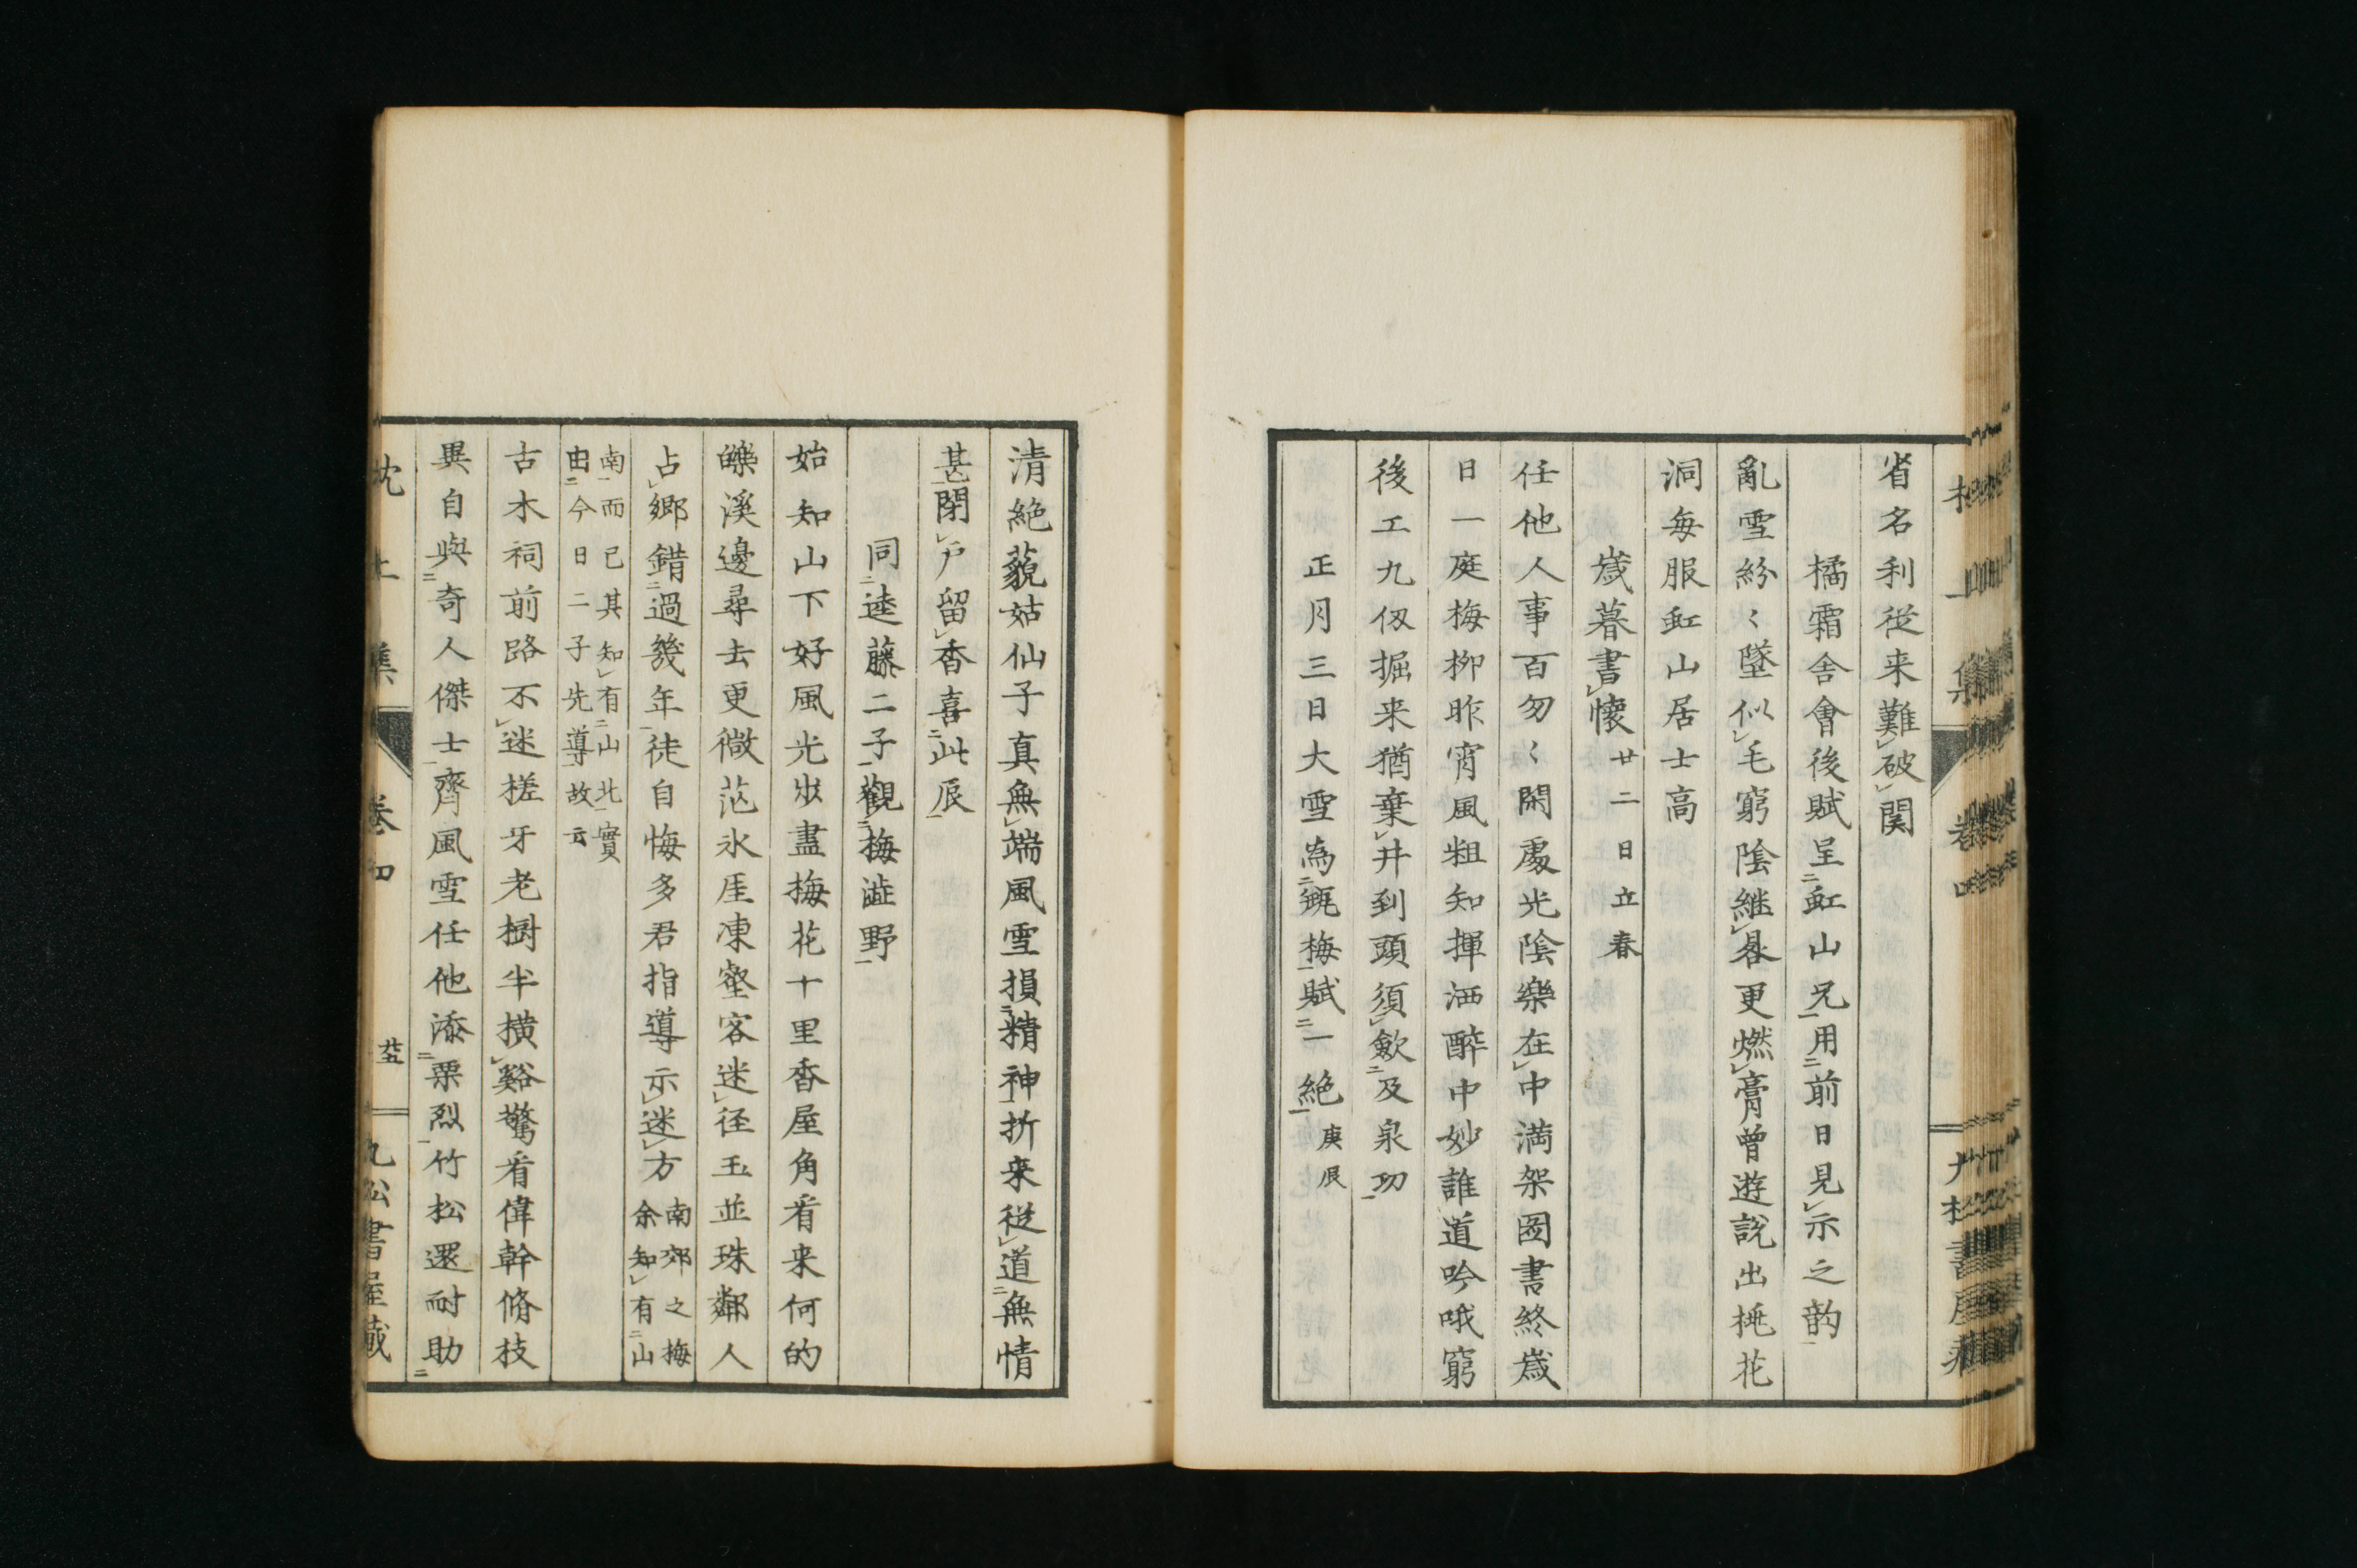 省名利従来難レ破レ関
橘霜舎會後賦呈二虹山兄一用二前日見レ示之韵一
亂雪紛〻墜似レ毛窮陰継レ晷更燃レ膏曾遊說出桃花
洞毎服虹山居士高
歳暮書レ懐 廿二日立春
任他人事百匆〻閑處光陰樂在レ中満架圖書終歳
日一庭梅柳昨宵風粗知揮洒酔中妙誰道吟哦窮
後工九仭掘来猶棄レ井到頭須レ歛二及泉功一
正月三日大雪為二甁梅一賦二一絶一 庚辰
清絶藐姑仙子真無レ端風雪損二精神一折来従レ道二無情
甚一閉レ戸留レ香喜二此辰一
同二逵藤二子一觀二梅澁野一
始知山下好風光出盡梅花十里香屋角看来何的
皪溪邊尋去更微茫氷厓凍壑客迷レ径玉並珠鄰人
占レ郷錯二過幾年一徒自悔多君指導示レ迷レ方 南郊之梅
余知レ有二山
南一而已其知レ有二山北一實
由二今日二子先導一故云
古木祠前路不レ迷槎牙老樹半横レ谿驚看偉幹脩枝
異自與二奇人傑士一齊風雪任他添二栗烈一竹松還耐助二
枕上集 卷四 廿五 九松書屋藏